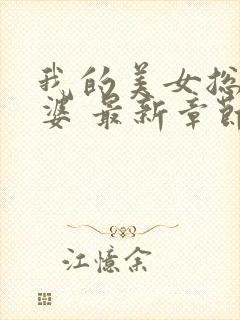 我的美女总
婆 最新章节
江忆余